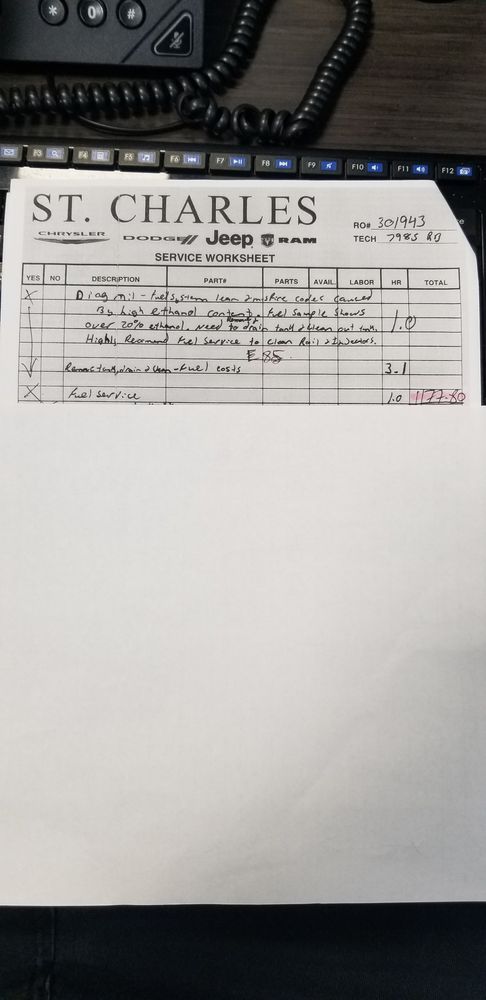 * 0 #
F3 F4 F5 F6 F7 F8 F9 F10 F11 F12
ST. CHARLES
RO# 301943
CHRYSLER DODGE Jeep RAM
TECH 7985 RJ
SERVICE WORKSHEET
YES NO DESCRIPTION PART# PARTS AVAIL. LABOR HR TOTAL
X Diag mil - fuel system lean & misfire codes caused
By high ethanol content. Fuel Sample Shows
over 20% ethanol. need to drain tank & clean out tank. 1.0
Highly Recomend Fuel Service to clean Rail & Injectors.
E-85
Remove tank, drain & clean - fuel costs 3.1
X Fuel Service 1.0 1177.80